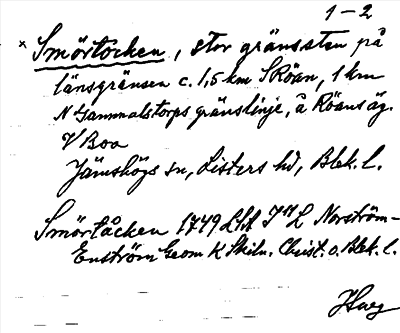 1-2
× Smörtocken, stor gränssten på
länsgränsen c. 1,5 km SRöan, 1 km
N Gammalstorps gränslinje, å Röans äg.
V Boa
Jämshögs sn, Listers hd, Blek. l.
Smörtåcken 1749 LSA J11 L Norström-
Enström Geom K Skiln. Christ. o. Blek. l.